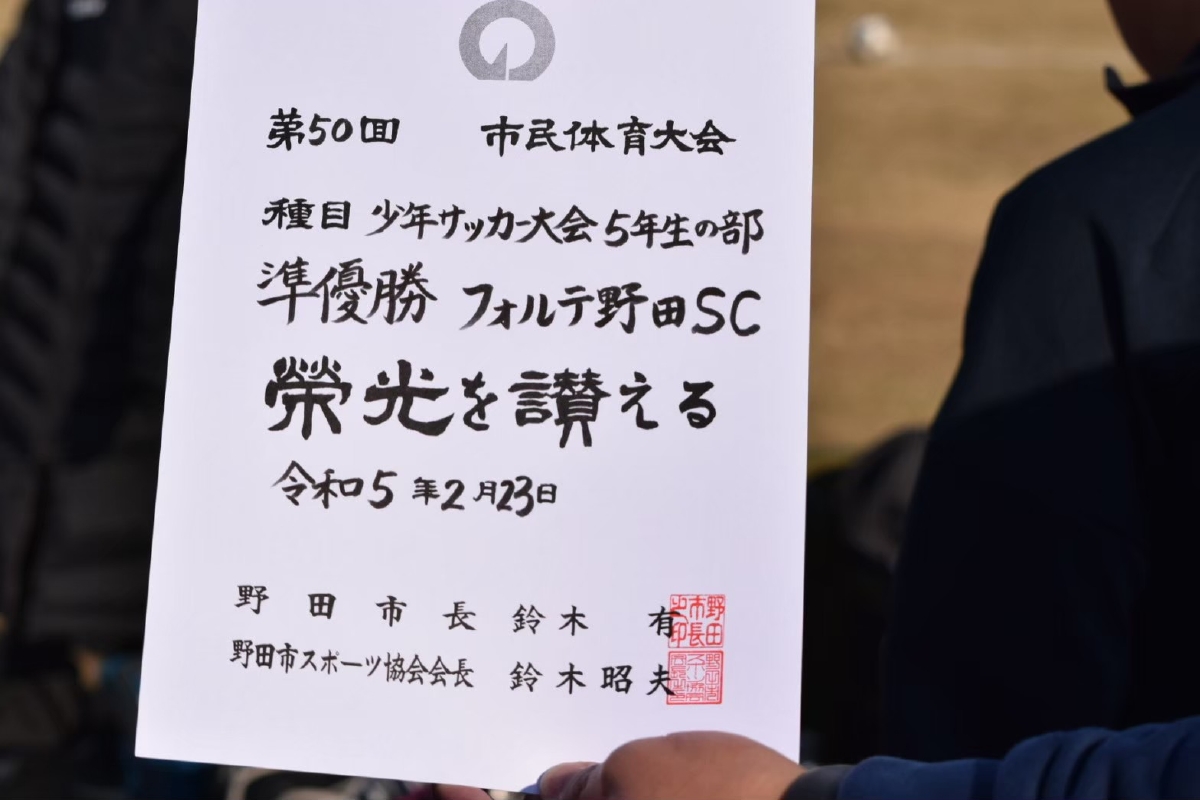 第50回 市民体育大会
種目 少年サッカー大会 5年生の部
準優勝 フォルテ野田SC
榮光を讃える
令和5年2月23日
野田市長 鈴木 有
野田市スポーツ協会会長 鈴木昭夫
野田市長之印